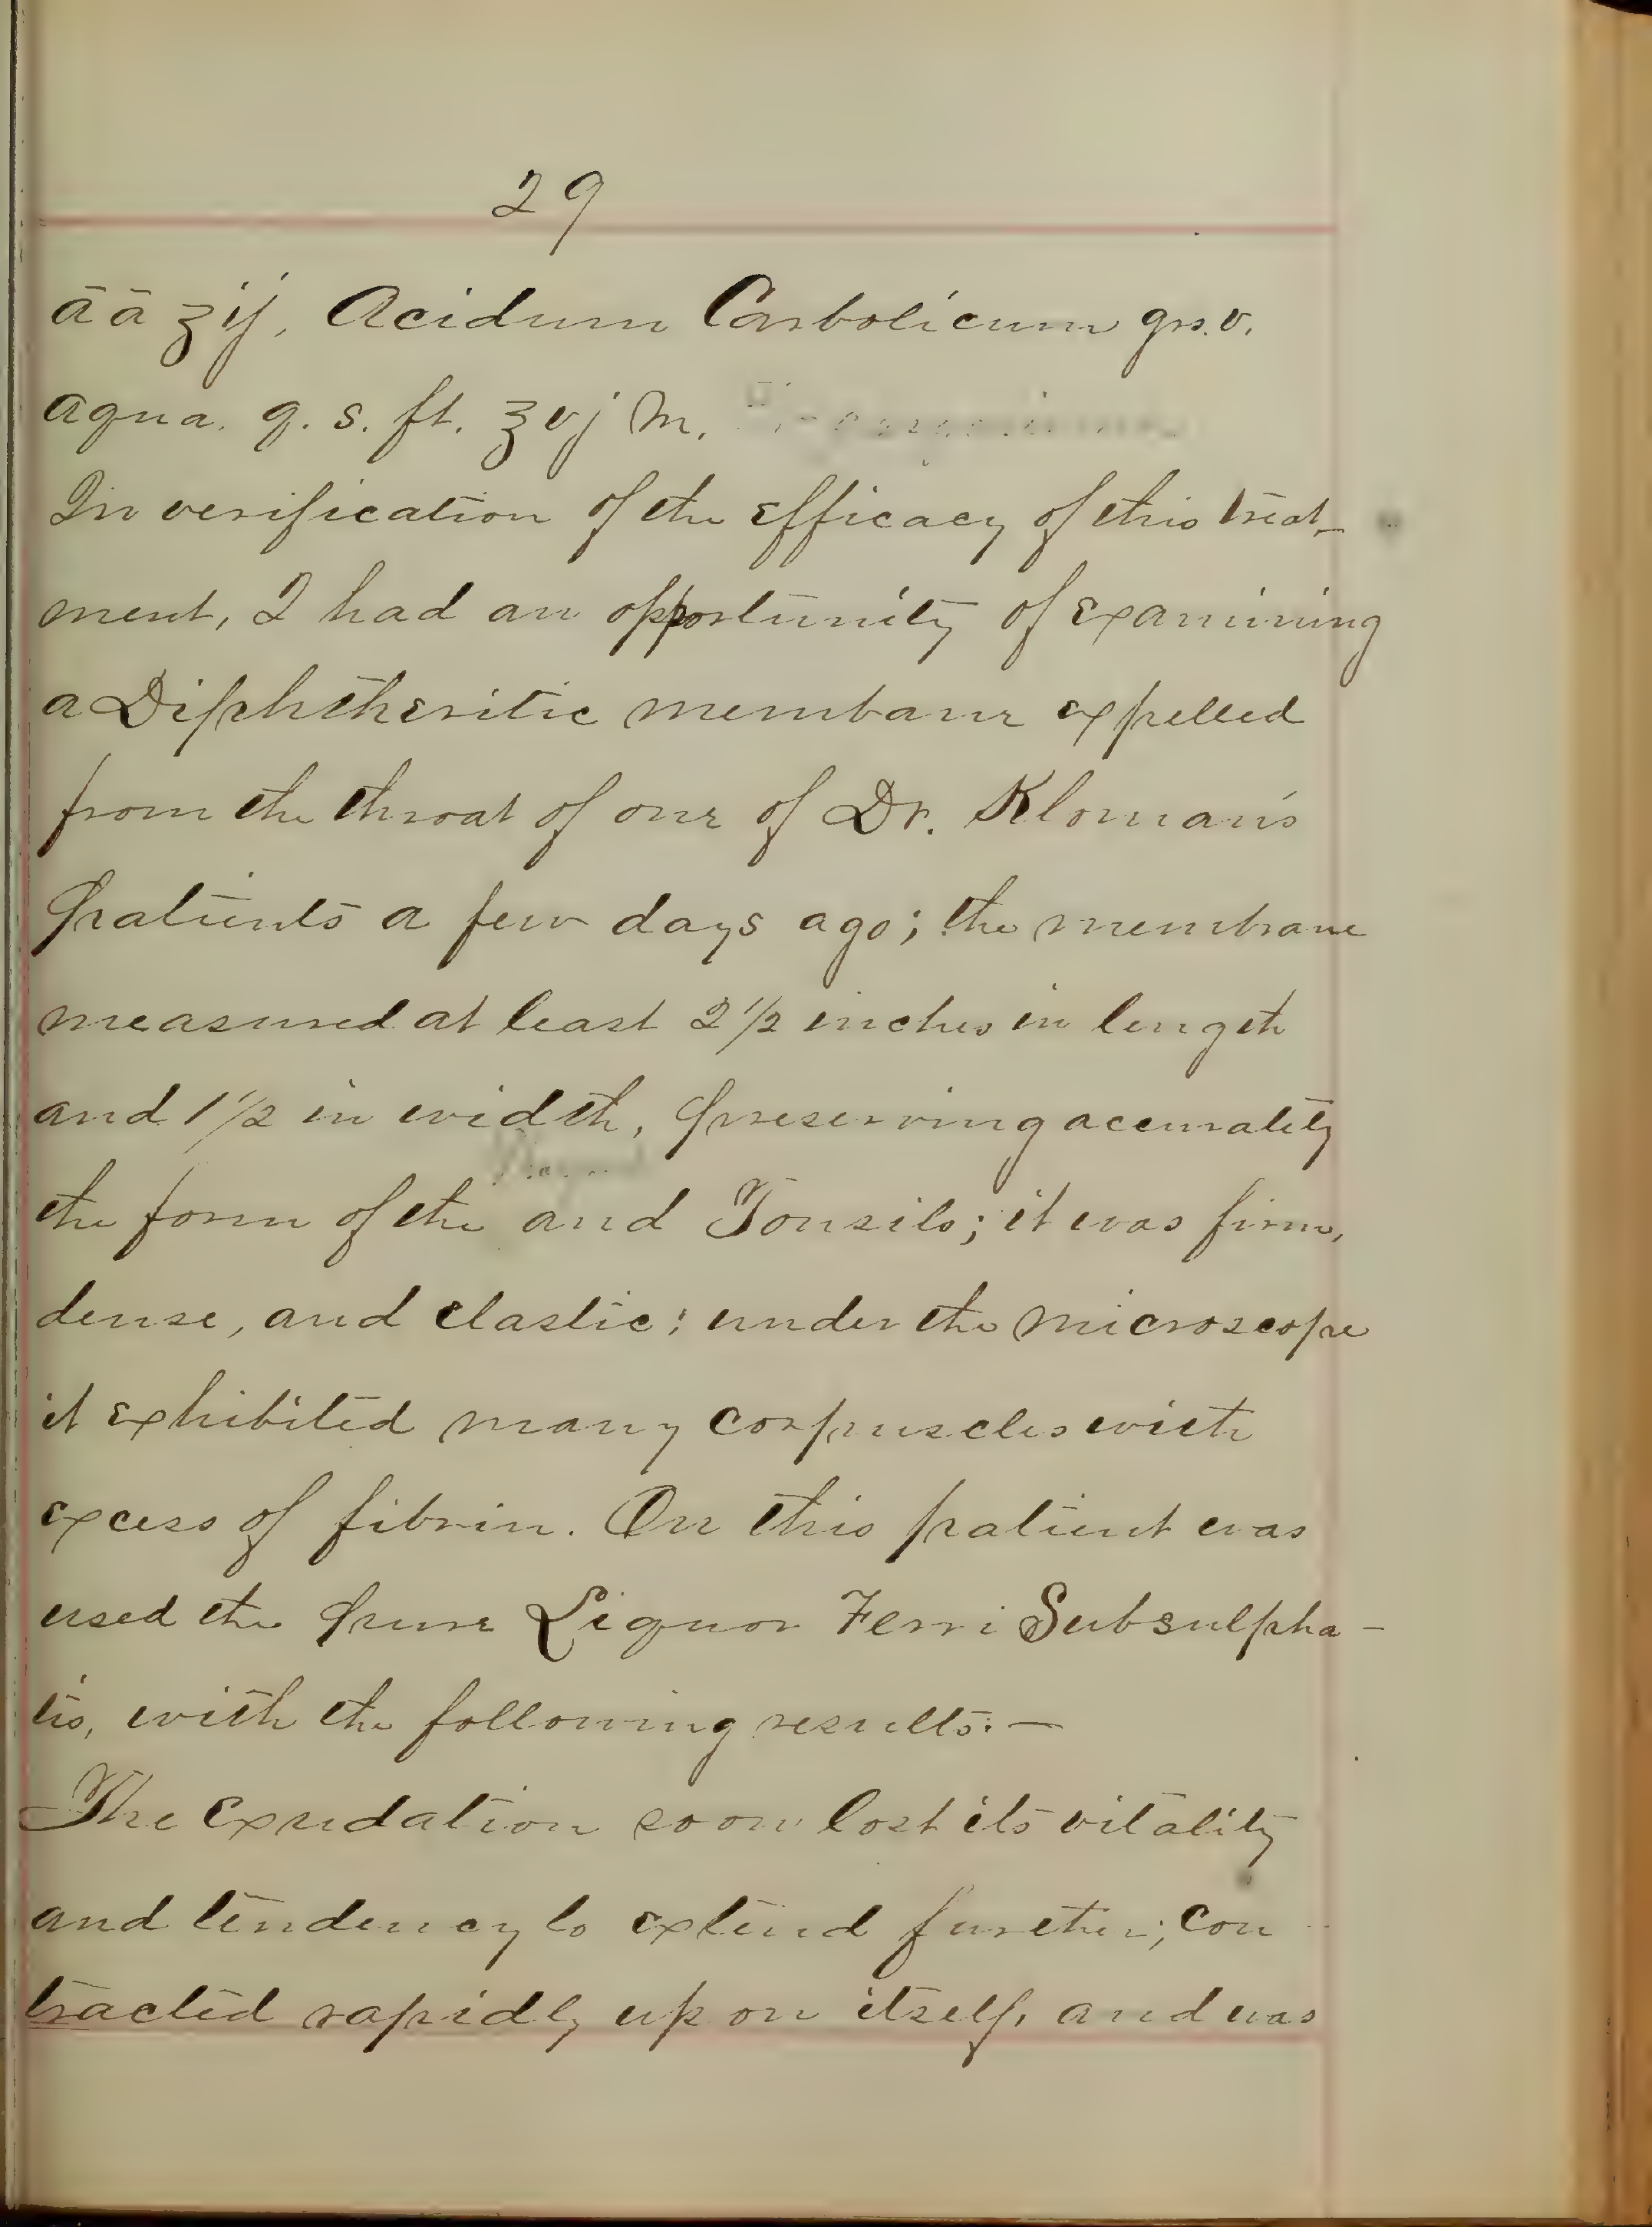 29
āā ʒij, Acidum Carbolicum grs.v.
aqua. q. s. ft. ℥vj M.
In verification of the efficacy of this treat-
ment, I had an opportunity of examining
a Diphtheritic membane expelled
from the throat of one of Dr. Kloman's
patients a few days ago; the membrane
measured at least 2 1/2 inches in length
and 1 1/2 in width, preserving accurately
the form of the and Tonsils; it was firm,
dense, and elastic; under the microscope
it exhibited many corpuscles with
excess of fibrin. On this patient was
used the pure Liquor Ferri Subsulpha-
tis, with the following results:—
The Exudation soon lost its vitality
and tendency to extend further; con
tracted rapidly upon itself, and was